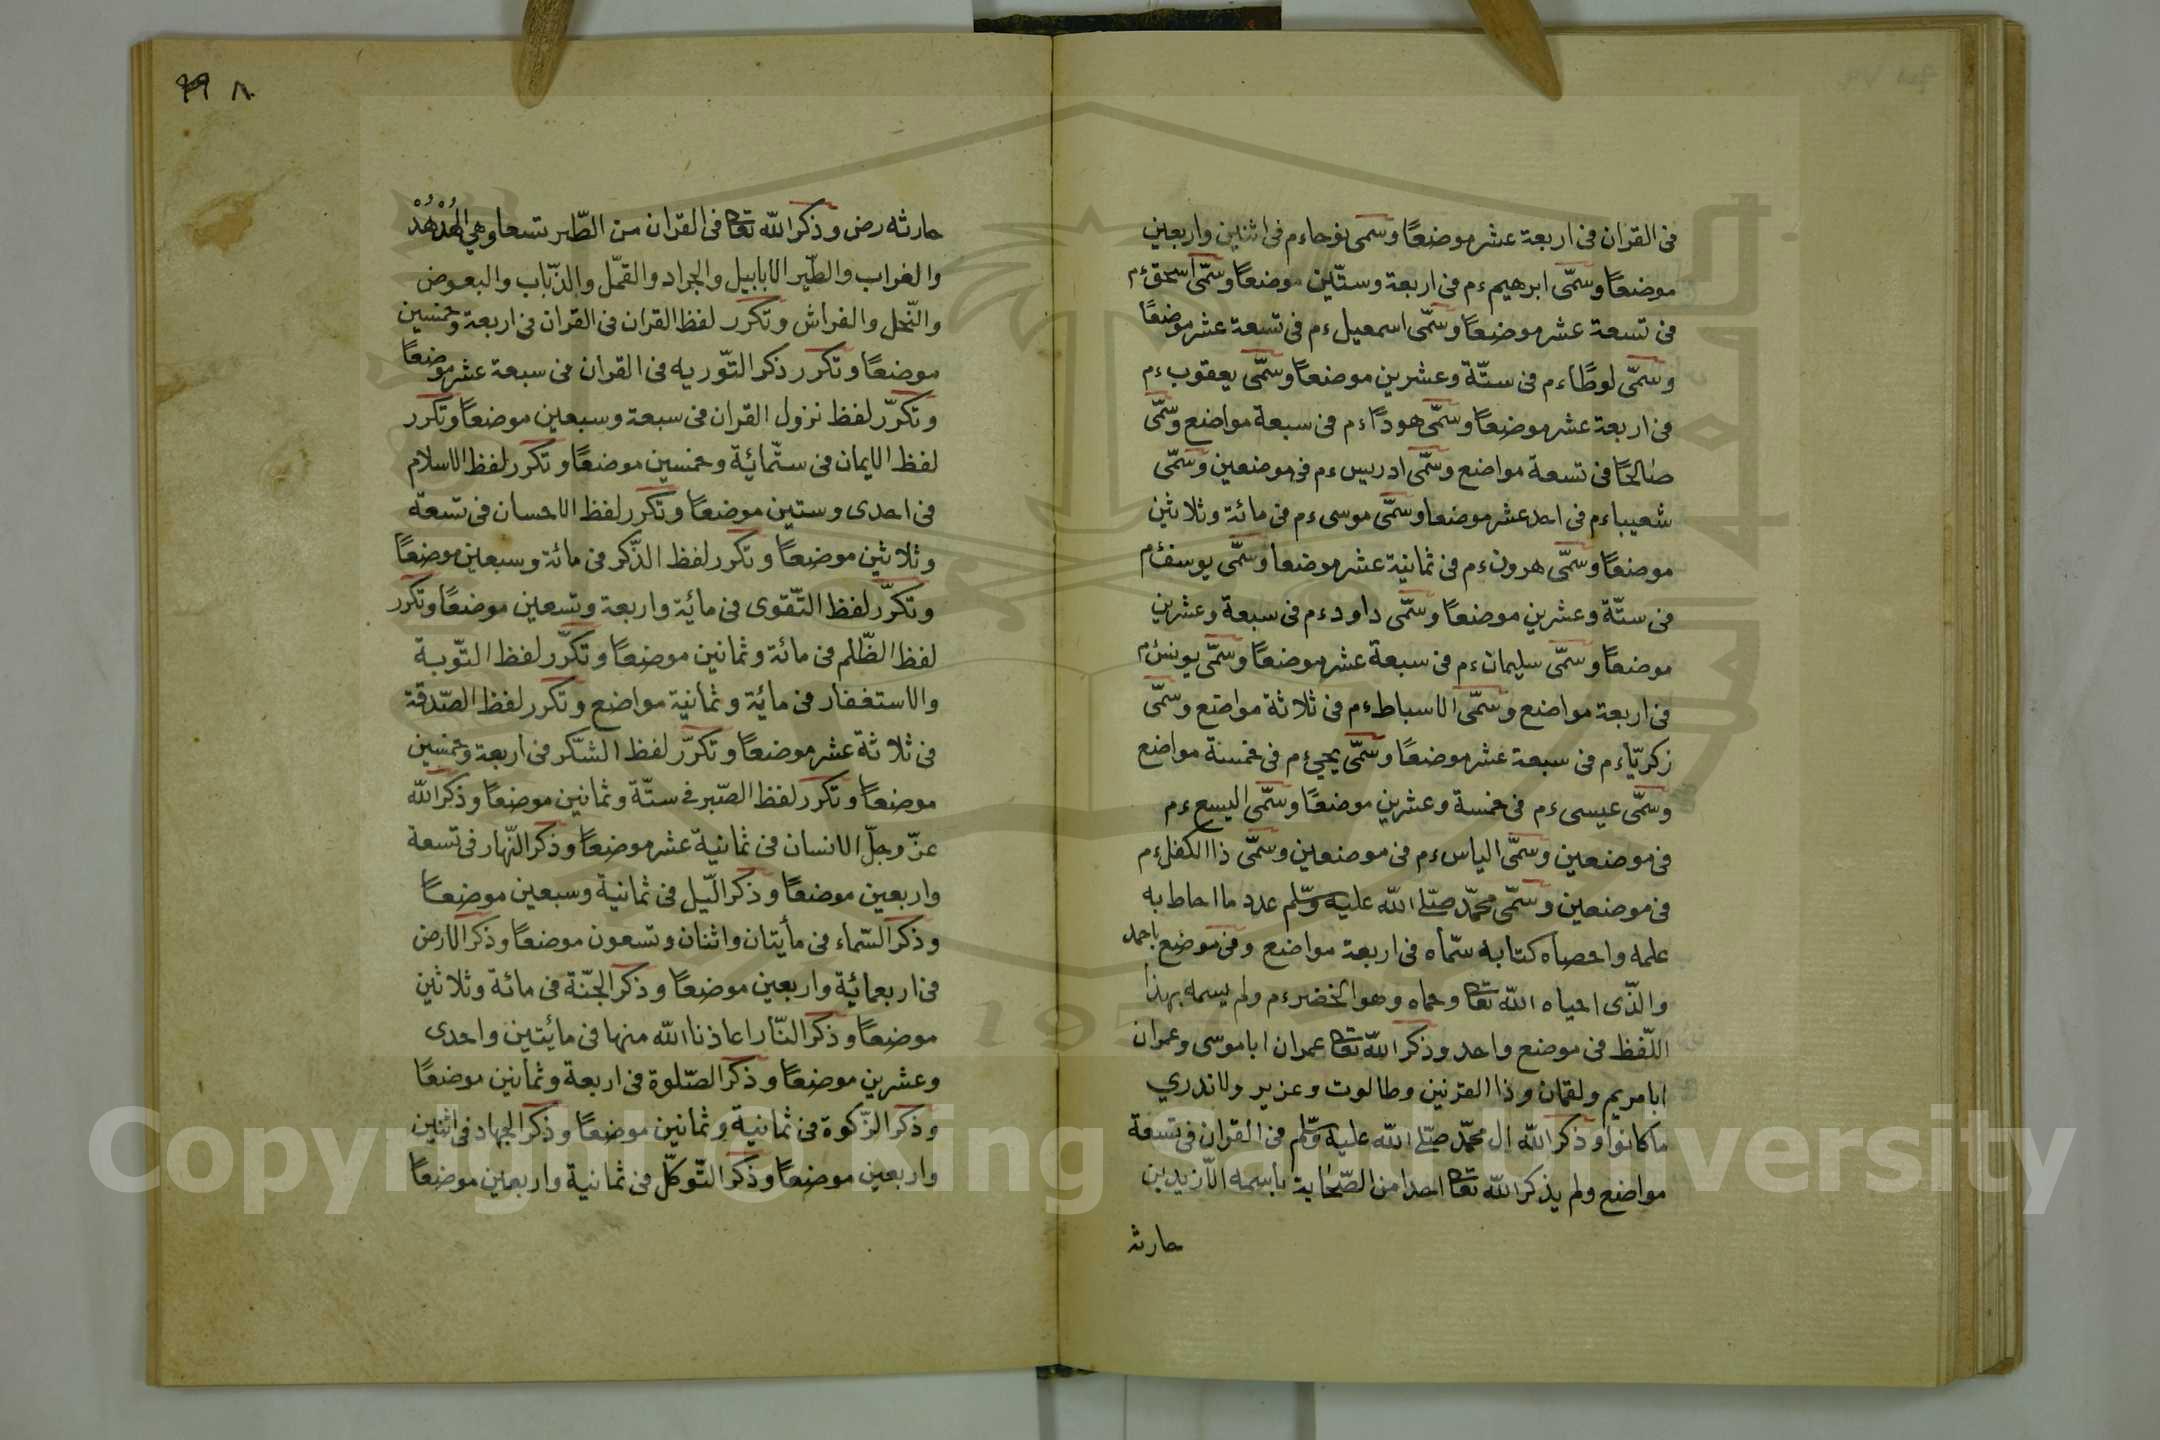 فى القران فى اربعة عشر موضعًا وسمى نوحا ءم فى اثنين واربعين
موضعًا وسمّى ابرهيم ءم فى اربعة وستّين موضعًا وسمّى اسحق ءم
فى تسعة عشر موضعًا وسمّى اسمعيل ءم فى تسعة عشر موضعًا
وسمّى لوطًا ءم فى ستّة وعشرين موضعًا وسمّى يعقوب ءم
فى اربعة عشر موضعًا وسمّى هودًا ءم فى سبعة مواضع وسمّى
صالحًا فى تسعة مواضع وسمّى ادريس ءم فى موضعين وسمّى
شعيبا ءم فى احد عشر موضعا وسمّى موسى ءم فى مائة وثلاثين
موضعًا وسمّى هرون ءم فى ثمانية عشر موضعا وسمّى يوسف ءم
فى ستّة وعشرين موضعًا وسمّى داود ءم فى سبعة وعشرين
موضعًا وسمّى سليمان ءم فى سبعة عشر موضعًا وسمّى يونس ءم
فى اربعة مواضع وسمّى الاسباط ءم فى ثلاثة مواضع وسمّى
زكريّا ءم فى سبعة عشر موضعًا وسمّى يحيى ءم فى خمسة مواضع
وسمّى عيسى ءم فى خمسة وعشرين موضعًا وسمّى اليسع ءم
فى موضعين وسمّى الياس ءم فى موضعين وسمّى ذا الكفل ءم
فى موضعين وسمّى محمّد صلّى الله عليه وسلّم عدد ما احاط به
علمه واحصاه كتابه سمّاه فى اربعة مواضع وفى موضع باحمد
والذّى احياه الله تعا وحماه وهو الخضر ءم ولم يسمه بهذا
اللّفظ فى موضع واحد وذكر الله تعا عمران ابا موسى وعمران
ابا مريم ولقمان وذا القرنين وطالوت وعزير ولا ندري
ما كانوا وذكر الله ال محمّد صلّى الله عليه وسلّم فى القران فى تسعة
مواضع ولم يذكر الله تعا احدا من الصّحابة باسمه الّا زيد بن
حارثه
٨٠
حارثه رض وذكر الله تعا فى القران من الطّير تسعا وهي الهُدْهُدْ
والغراب والطّير الابابيل والجراد والقمّل والذّباب والبعوض
والنّحل والفراش وتكرر لفظ القران فى القران فى اربعة وخمسين
موضعًا وتكرر ذكر التّوريه فى القران فى سبعة عشر موضعًا
وتكرّر لفظ نزول القران فى سبعة وسبعين موضعًا وتكرر
لفظ الايمان فى ستّمائة وخمسين موضعًا وتكرر لفظ الاسلام
فى احدى وستين موضعًا وتكرر لفظ الاحسان فى تسعة
وثلاثين موضعًا وتكرر لفظ الذّكر فى مائة وسبعين موضعًا
وتكرّر لفظ التّقوى فى مائة واربعة وتسعين موضعًا وتكرر
لفظ الظّلم فى مائة وثمانين موضعًا وتكرّر لفظ التّوبة
والاستغفار فى مائة وثمانية مواضع وتكرر لفظ الصّدقة
فى ثلاثة عشر موضعًا وتكرّر لفظ الشّكر فى اربعة وخمسين
موضعًا وتكرر لفظ الصّبر فى ستّة وثمانين موضعًا وذكر الله
عزّ وجلّ الانسان فى ثمانية عشر موضعًا وذكر النّهار فى تسعة
واربعين موضعًا وذكر الّيل فى ثمانية وسبعين موضعًا
وذكر السّماء فى مأيتان واثنان وتسعون موضعًا وذكر الارض
فى اربعمائة واربعين موضعًا وذكر الجنّة فى مائة وثلاثين
موضعًا وذكر النّار اعاذنا الله منها فى مائيتين واحدى
وعشرين موضعًا وذكر الصّلوة فى اربعة وثمانين موضعًا
وذكر الزّكوة فى ثمانية وثمانين موضعًا وذكر الجهاد فى اثنين
واربعين موضعًا وذكر التّوكّل فى ثمانية واربعين موضعًا
Copyright © King Saud University